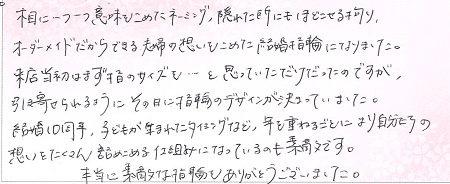 相に一つ一つ意味をこめたネーミング,隠れた所にもほどこせる拘り,
オーダーメイドだからできる夫婦の想いをこめた結婚指輪になりました。
来店当初はまず指のサイズを…と思っていただけだったのですが,
引き寄せられるようにその日に指輪のデザインが決っていました。
結婚10周年,子どもが生まれたタイミングなど,年を重ねるごとにより自分たちの
想いをたくさん詰めこめる仕組みになっているのも素敵です。
本当に素敵な指輪をありがとうございました。